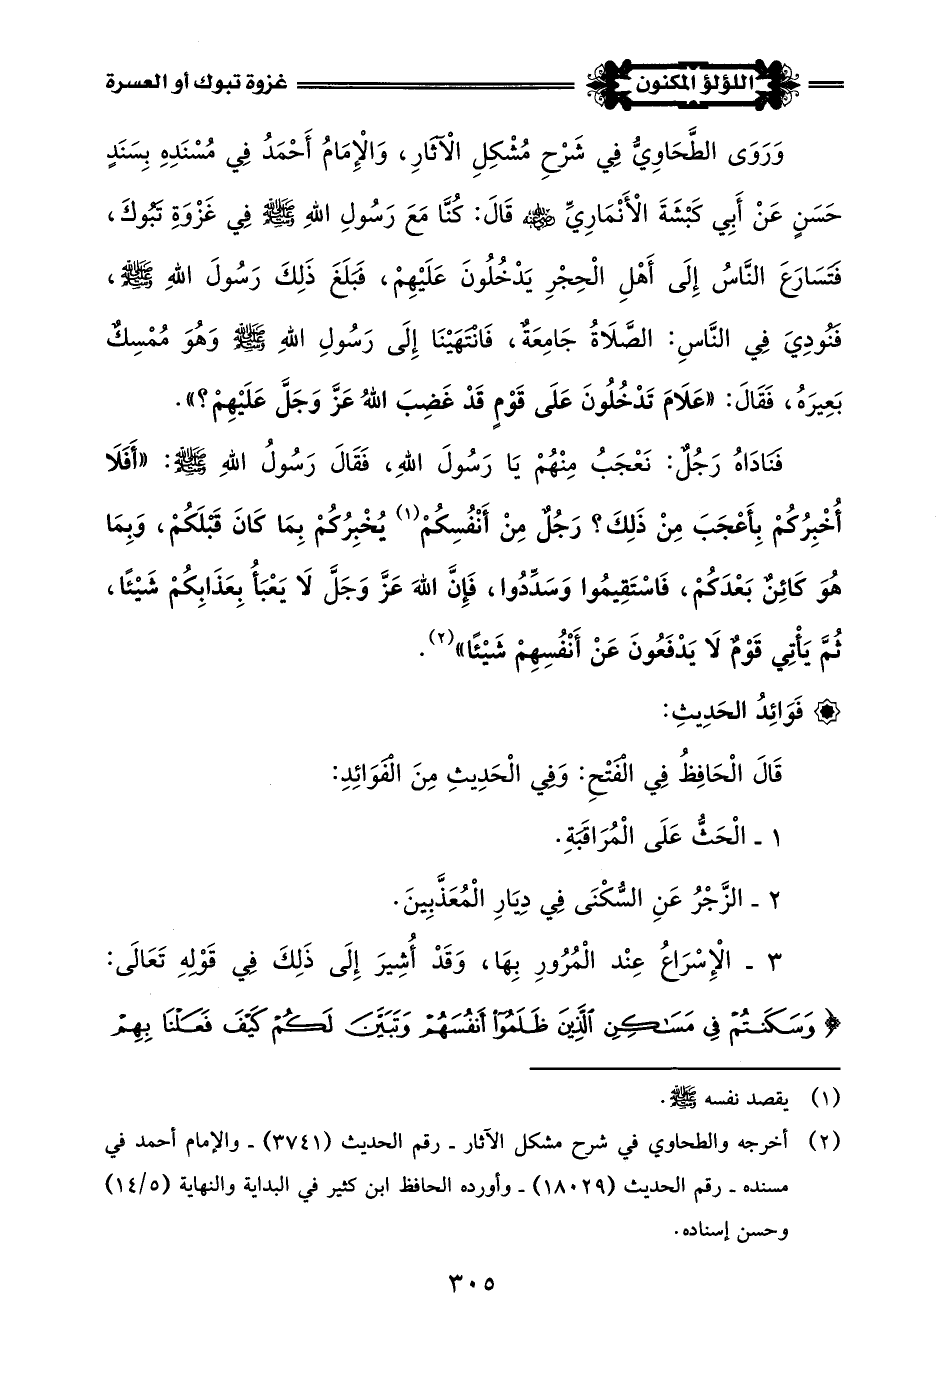 اللؤلؤ المكنون غزوة تبوك أو العسرة
وَرَوَى الطَّحَاوِيُّ فِي شَرْحِ مُشْكِلِ الْآثَارِ، وَالْإِمَامُ أَحْمَدُ فِي مُسْنَدِهِ بِسَنَدٍ
حَسَنٍ عَنْ أَبِي كَبْشَةَ الْأَنْمَارِيِّ رضي الله عنه قَالَ: كُنَّا مَعَ رَسُولِ اللهِ ﷺ فِي غَزْوَةِ تَبُوكَ،
فَتَسَارَعَ النَّاسُ إِلَى أَهْلِ الْحِجْرِ يَدْخُلُونَ عَلَيْهِمْ، فَبَلَغَ ذَلِكَ رَسُولَ اللهِ ﷺ،
فَنُودِيَ فِي النَّاسِ: الصَّلَاةُ جَامِعَةٌ، فَانْتَهَيْنَا إِلَى رَسُولِ اللهِ ﷺ وَهُوَ مُمْسِكٌ
بَعِيرَهُ، فَقَالَ: «عَلَامَ تَدْخُلُونَ عَلَى قَوْمٍ قَدْ غَضِبَ اللهُ عَزَّ وَجَلَّ عَلَيْهِمْ؟».
فَنَادَاهُ رَجُلٌ: نَعْجَبُ مِنْهُمْ يَا رَسُولَ اللهِ، فَقَالَ رَسُولُ اللهِ ﷺ: «أَفَلَا
أُخْبِرُكُمْ بِأَعْجَبَ مِنْ ذَلِكَ؟ رَجُلٌ مِنْ أَنْفُسِكُمْ(١) يُخْبِرُكُمْ بِمَا كَانَ قَبْلَكُمْ، وَبِمَا
هُوَ كَائِنٌ بَعْدَكُمْ، فَاسْتَقِيمُوا وَسَدِّدُوا، فَإِنَّ اللهَ عَزَّ وَجَلَّ لَا يَعْبَأُ بِعَذَابِكُمْ شَيْئًا،
ثُمَّ يَأْتِي قَوْمٌ لَا يَدْفَعُونَ عَنْ أَنْفُسِهِمْ شَيْئًا»(٢).
۞ فَوَائِدُ الحَدِيثِ:
قَالَ الْحَافِظُ فِي الْفَتْحِ: وَفِي الْحَدِيثِ مِنَ الْفَوَائِدِ:
١ ـ الْحَثُّ عَلَى الْمُرَاقَبَةِ.
٢ ـ الزَّجْرُ عَنِ السُّكْنَى فِي دِيَارِ الْمُعَذَّبِينَ.
٣ ـ الْإِسْرَاعُ عِنْد الْمُرُورِ بِهَا، وَقَدْ أُشِيرَ إِلَى ذَلِكَ فِي قَوْلِهِ تَعَالَى:
﴿وَسَكَنتُمْ فِي مَسَـٰكِنِ ٱلَّذِينَ ظَلَمُوٓا۟ أَنفُسَهُمْ وَتَبَيَّنَ لَكُمْ كَيْفَ فَعَلْنَا بِهِمْ
(١) يقصد نفسه ﷺ.
(٢) أخرجه والطحاوي في شرح مشكل الآثار ـ رقم الحديث (٣٧٤١) ـ والإمام أحمد في
مسنده ـ رقم الحديث (١٨٠٢٩) ـ وأورده الحافظ ابن كثير في البداية والنهاية (١٤/٥)
وحسن إسناده.
٣٠٥